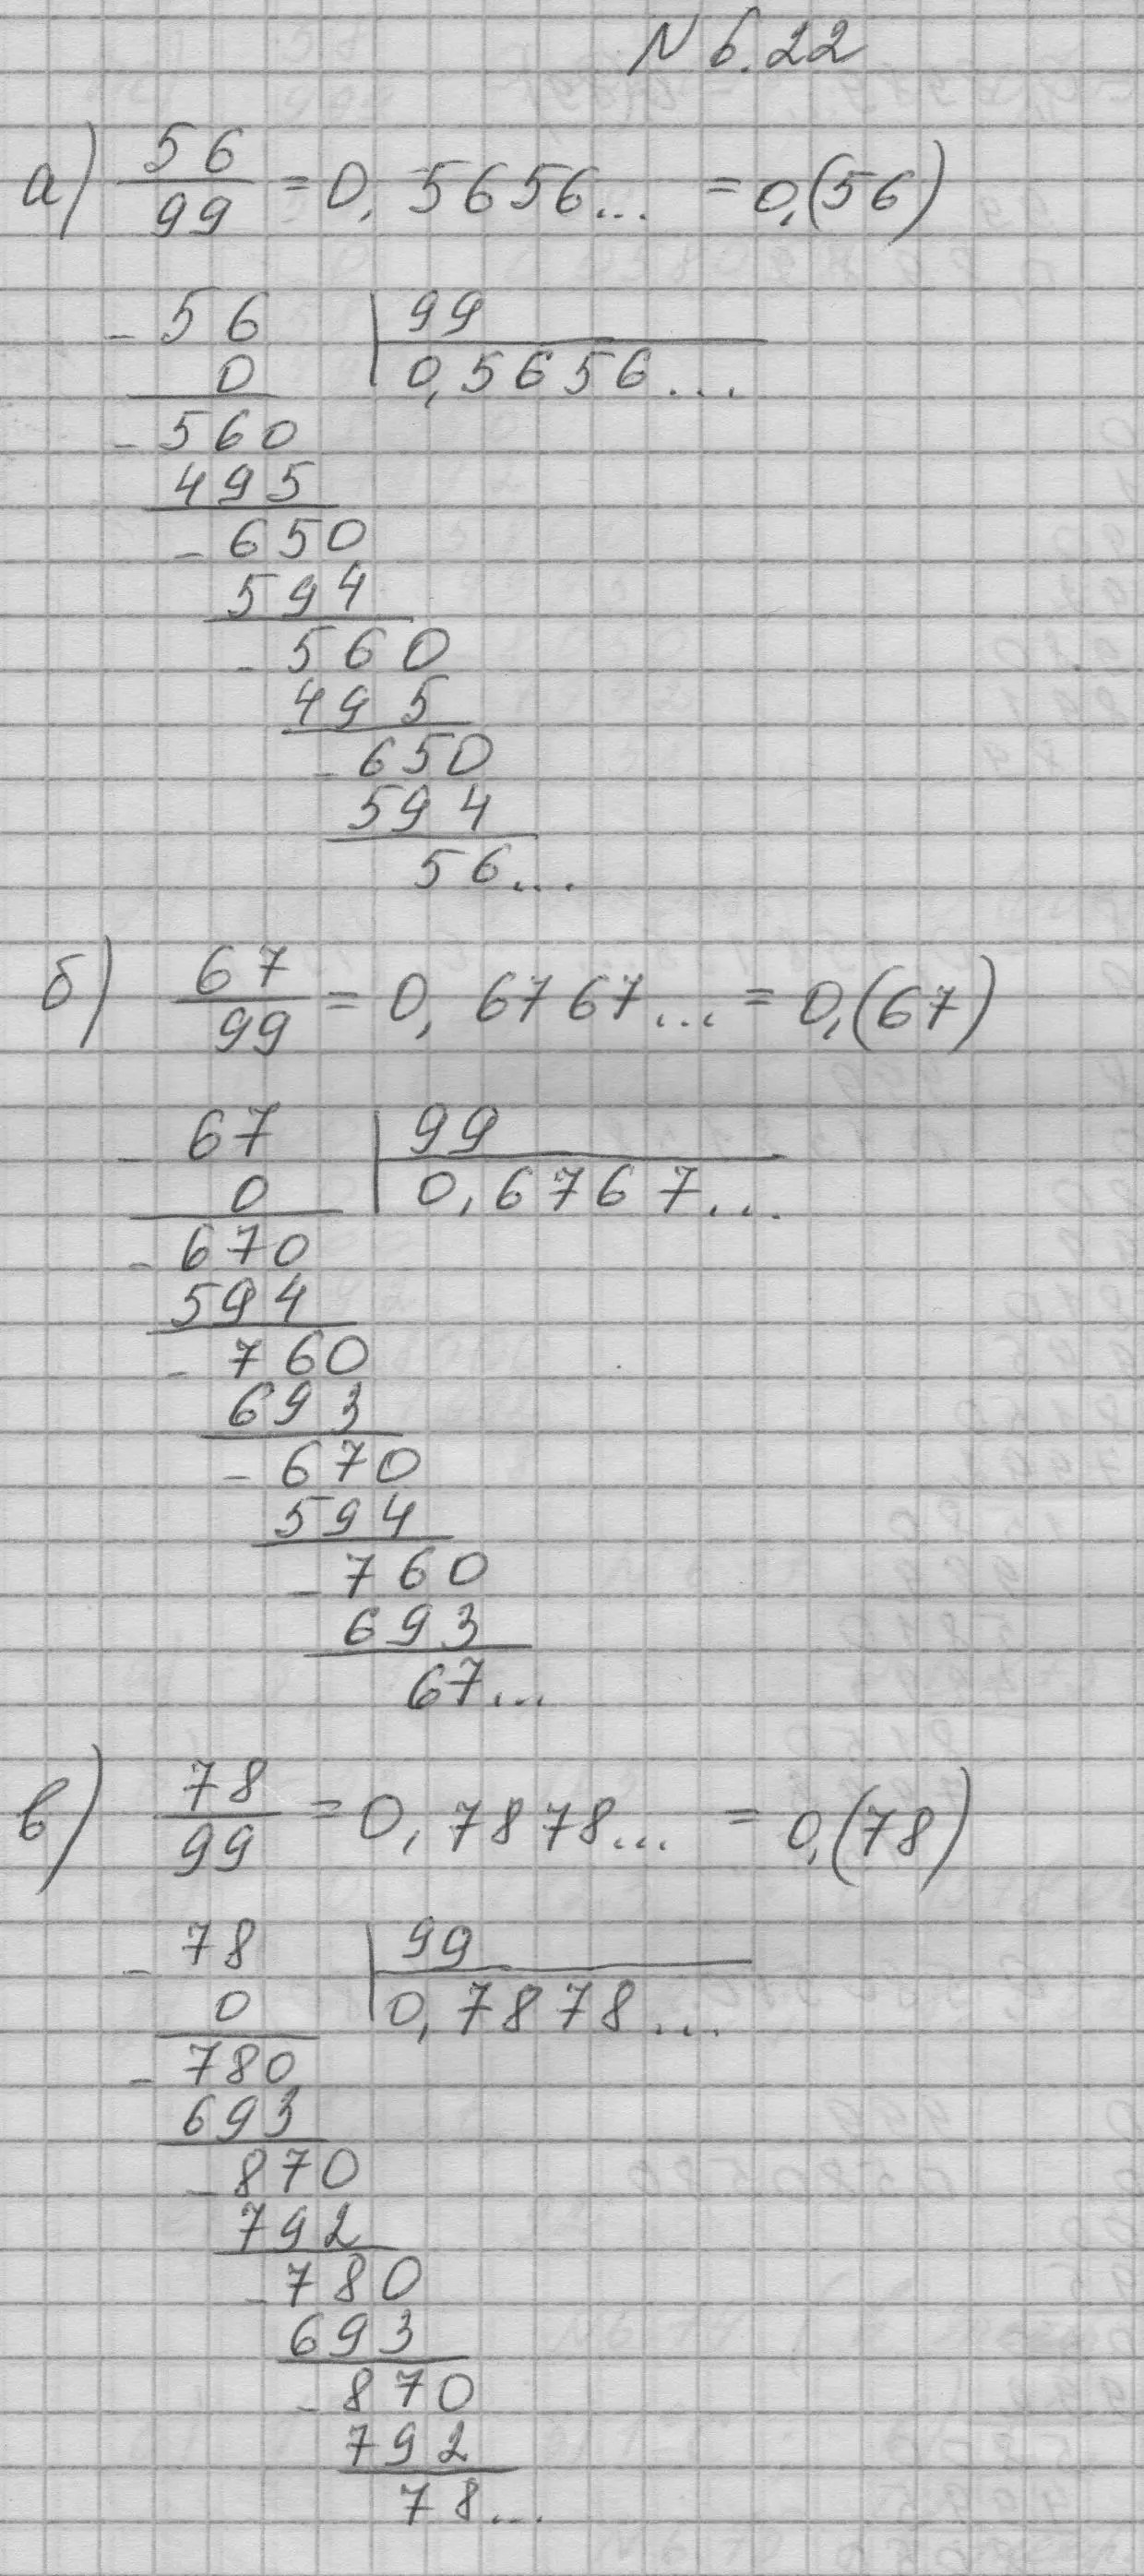 N 6.22
а) 56/99 = 0,5656... = 0,(56)
- 56 | 99
0 | 0,5656...
- 560
495
- 650
594
- 560
495
- 650
594
56...
б) 67/99 = 0,6767... = 0,(67)
- 67 | 99
0 | 0,6767...
- 670
594
- 760
693
- 670
594
- 760
693
67...
в) 78/99 = 0,7878... = 0,(78)
- 78 | 99
0 | 0,7878...
- 780
693
- 870
792
- 780
693
- 870
792
78...